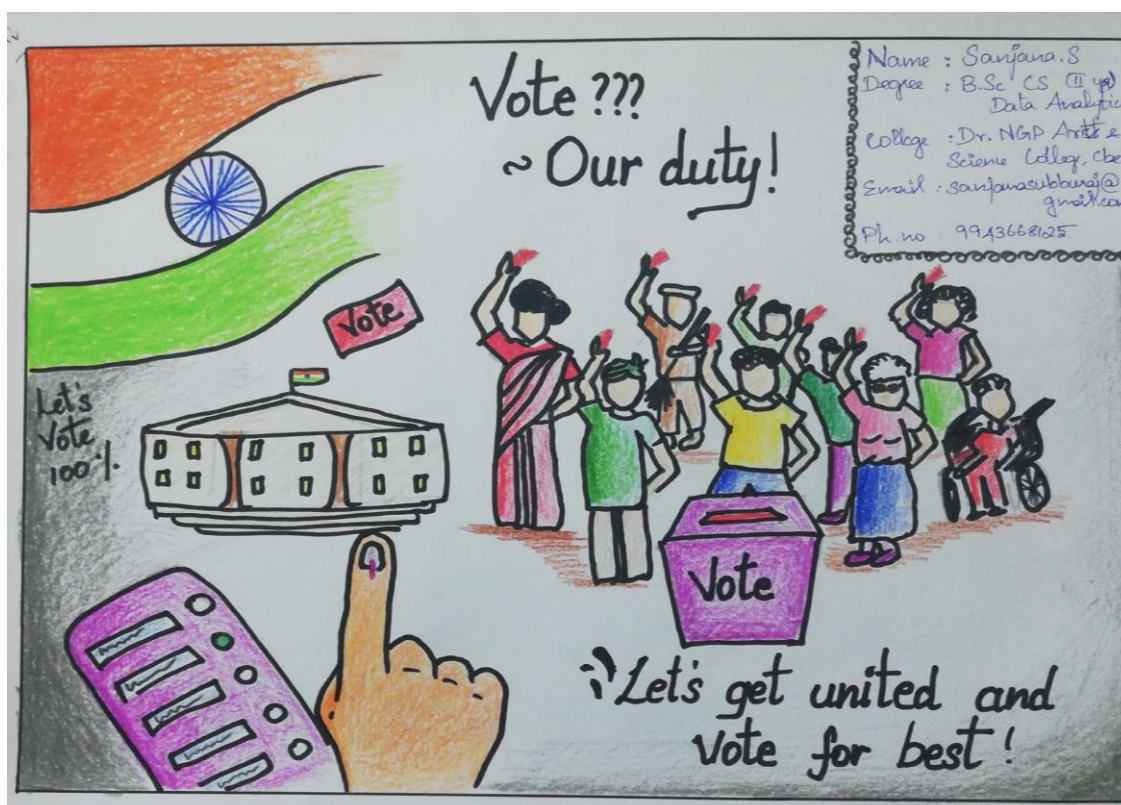 Vote ???
~ Our duty!
Name : Sanjana.S
Degree : B.Sc CS (II yr)
Data Analytic
College : Dr. NGP Arts &
Science College, Cbe
Email : sanjanasubburaj@
gmail.com
Ph.no : 9943668625
Vote
Let's
Vote
100%
Vote
Let's get united and
Vote for best !